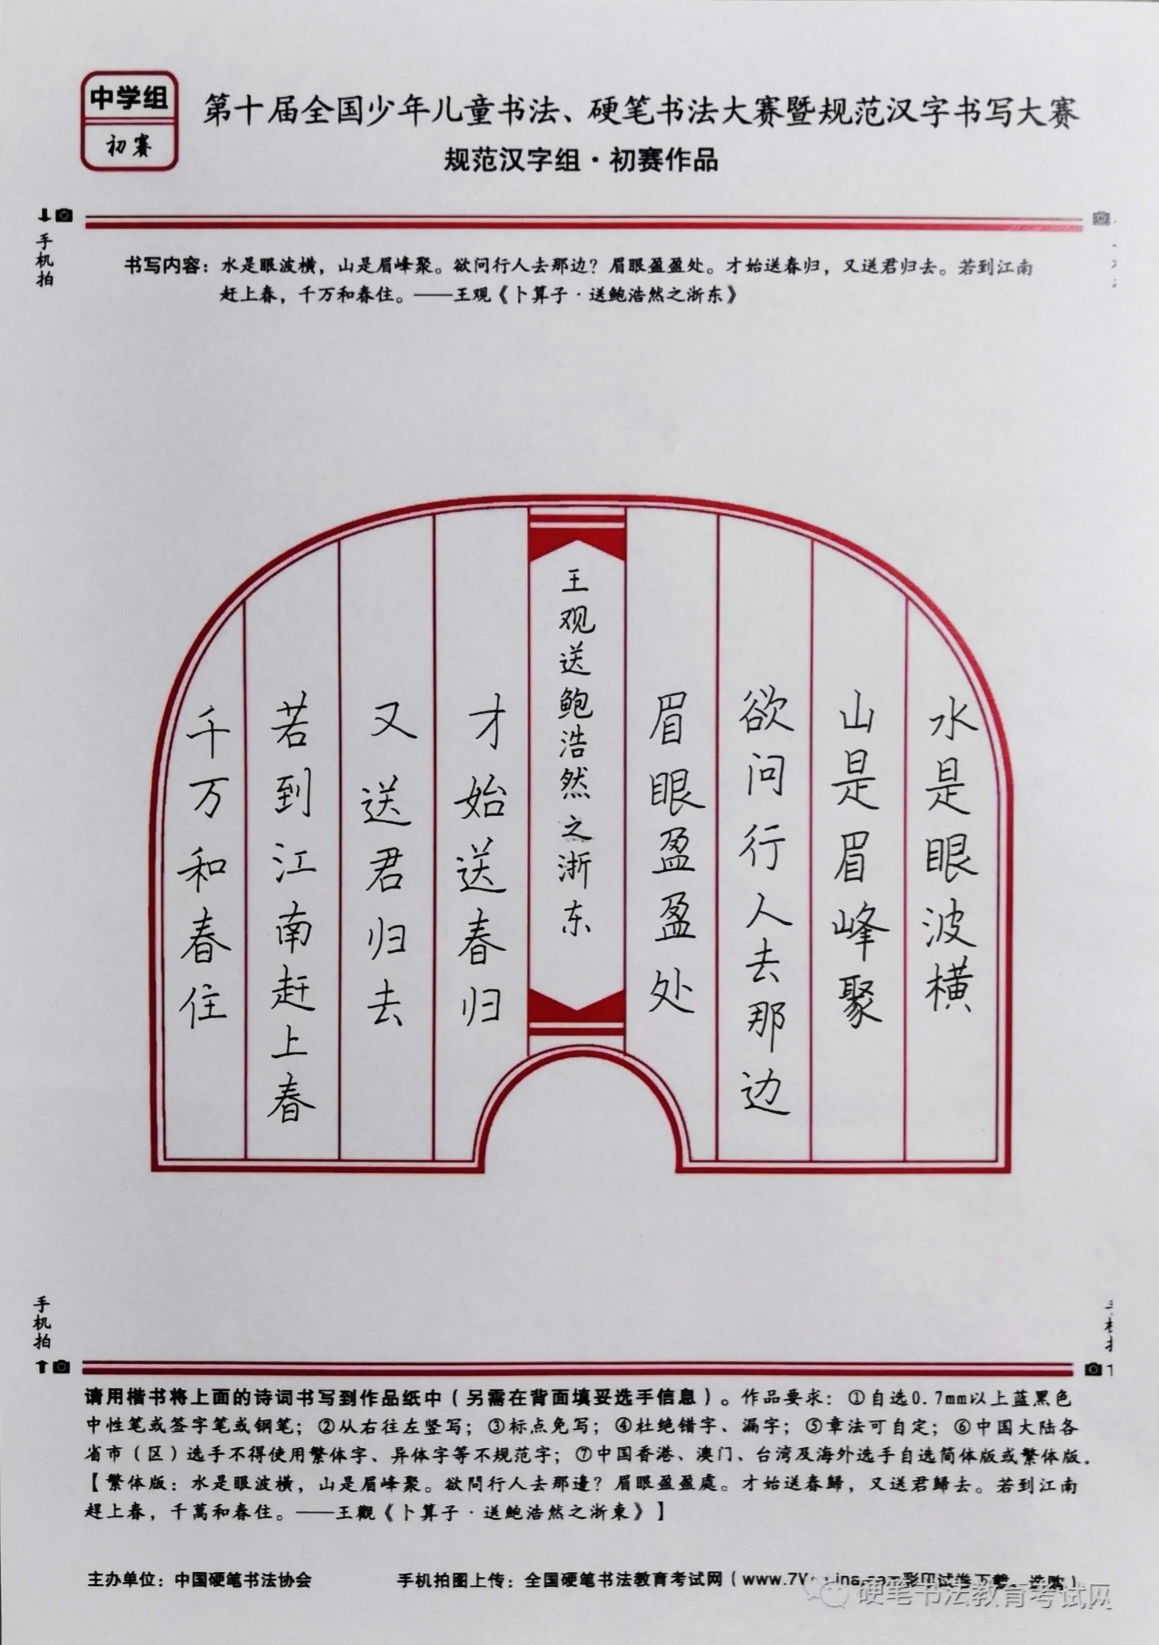 中学组
初赛
第十届全国少年儿童书法、硬笔书法大赛暨规范汉字书写大赛
规范汉字组·初赛作品
手机拍
书写内容：水是眼波横，山是眉峰聚。欲问行人去那边？眉眼盈盈处。才始送春归，又送君归去。若到江南
赶上春，千万和春住。——王观《卜算子·送鲍浩然之浙东》
水是眼波横
山是眉峰聚
欲问行人去那边
眉眼盈盈处
王观送鲍浩然之浙东
才始送春归
又送君归去
若到江南赶上春
千万和春住
手机拍
请用楷书将上面的诗词书写到作品纸中（另需在背面填妥选手信息）。作品要求：①自选0.7mm以上蓝黑色
中性笔或签字笔或钢笔；②从右往左竖写；③标点免写；④杜绝错字、漏字；⑤章法可自定；⑥中国大陆各
省市（区）选手不得使用繁体字、异体字等不规范字；⑦中国香港、澳门、台湾及海外选手自选简体版或繁体版。
【繁体版：水是眼波橫，山是眉峰聚。欲問行人去那邊？眉眼盈盈處。才始送春歸，又送君歸去。若到江南
趕上春，千萬和春住。——王觀《卜算子·送鮑浩然之浙東》】
主办单位：中国硬笔书法协会
手机拍图上传：全国硬笔书法教育考试网（www.7
硬笔书法教育考试网